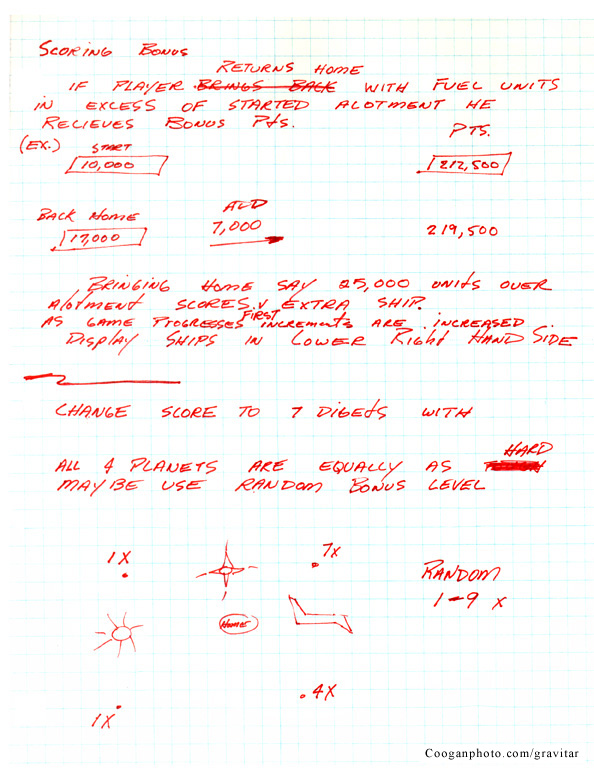 SCORING BONUS
RETURNS HOME
IF PLAYER BRINGS BACK WITH FUEL UNITS
IN EXCESS OF STARTED ALOTMENT HE
RELIEVES BONUS PTS.
PTS.
(EX.) START
10,000 212,500
BACK HOME ADD
17,000 7,000 219,500
BRINGING HOME SAY 25,000 UNITS OVER
ALOTMENT SCORES EXTRA SHIP.
FIRST
AS GAME PROGRESSES INCREMENTS ARE INCREASED
DISPLAY SHIPS IN LOWER RIGHT HAND SIDE
CHANGE SCORE TO 7 DIGETS WITH
HARD
ALL 4 PLANETS ARE EQUALLY AS
MAYBE USE RANDOM BONUS LEVEL
1X 7X
RANDOM
1-9 X
HOME
1X 4X
Cooganphoto.com/gravitar